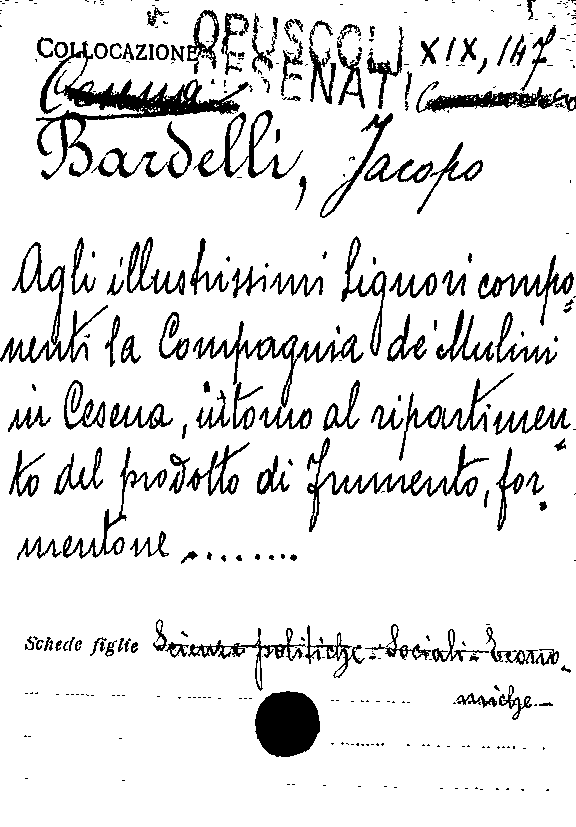 COLLOCAZIONE OPUSCOLI XIX, 147
Cesena CESENATI
Bardelli, Jacopo
Agli illustrissimi Signori compo-
nenti la Compagnia de' Mulini
in Cesena, intorno al ripartimen-
to del prodotto di frumento, for-
mentone ........
Schede figlie Scienze politiche-Sociali-Econo-
miche-